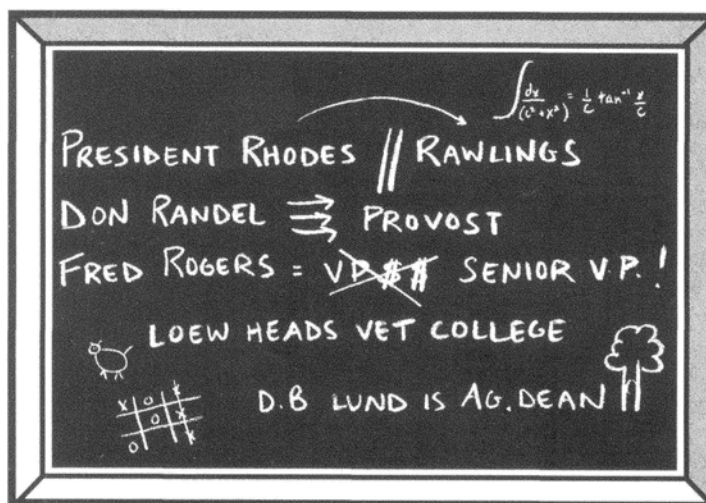 ∫ dx/(c²+x²) = 1/c tan⁻¹ x/c
PRESIDENT RHODES // RAWLINGS
DON RANDEL ⇒ PROVOST
FRED ROGERS = VP $$ SENIOR V.P.!
LOEW HEADS VET COLLEGE
D.B LUND IS AG. DEAN
X O X
O X
O X